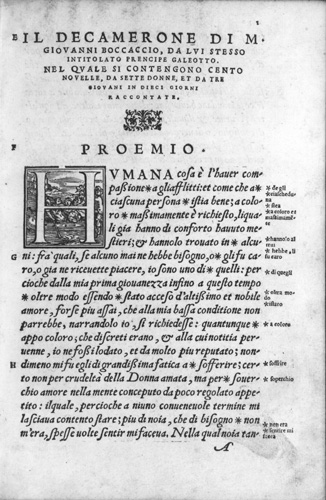 IL DECAMERONE DI M.
GIOVANNI BOCCACCIO, DA LVI STESSO
INTITOLATO PRENCIPE GALEOTTO.
NEL QVALE SI CONTENGONO CENTO
NOVELLE, DA SETTE DONNE, ET DA TRE
GIOVANI IN DIECI GIORNI
RACCONTATE.
PROEMIO.
HVMANA cosa è l'hauer com
passione*a gliafflitti: et come che a*
ciascuna persona*istia bene; a colo
ro*massimamente è richiesto, liqua
li gia hanno di conforto hauuto me
stieri; &*hannolo trouato in*alcu
ni: fra' quali, se alcuno mai ne hebbe bisogno, o*gli fu ca
ro, o gia ne riceuette piacere, io sono uno di*quelli: per
cioche dalla mia prima giouanezza infino a questo tempo
*oltre modo essendo*stato acceso d'altissimo et nobile
amore, forse piu assai, che alla mia bassa conditione non
parrebbe, narrandolo io, si richiedesse: quantunque*
appo coloro; che discreti erano, & alla cui notitia per
uenne, io ne fossi lodato, et da molto piu reputato; non
dimeno mi fu egli di grandissima fatica a*sofferire; cer
to non per crudeltà della Donna amata, ma per*souer
chio amore nella mente conceputo da poco regolato appe
tito: ilquale, percioche a niuno conueneuole termine mi
lasciaua contento stare; piu di noia, che di bisogno*non
m'era, spesse uolte sentir mi faceua. Nella qual noia tan-
A
*de gli
*stea
*a coloro et
massimamente
*hannolo al
*hebbe, o
li fu caro
*di quegli
*a coloro
*soffrire
*soperchio
*non era
*sentire mi